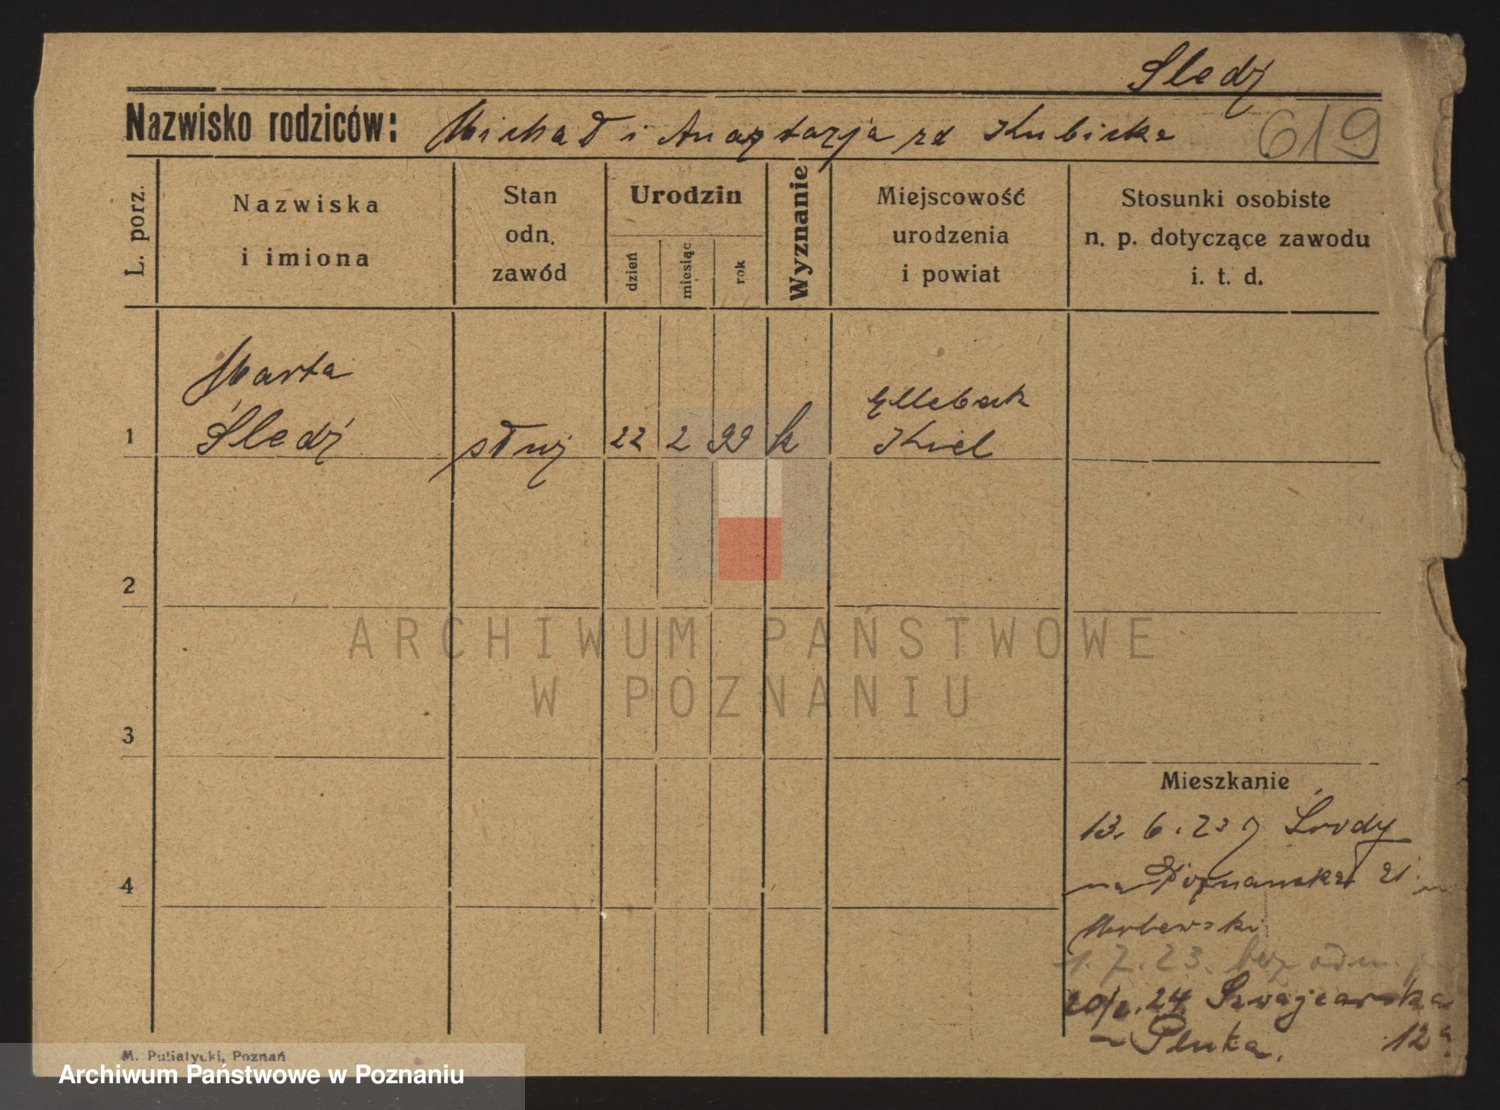 Śledź
Nazwisko rodziców: Michał i Anastazja zd Kubicka 619
L. porz.
Nazwiska
i imiona
Stan
odn.
zawód
Urodzin
dzień
miesiąc
rok
Wyznanie
Miejscowość
urodzenia
i powiat
Stosunki osobiste
n. p. dotyczące zawodu
i. t. d.
Marta
1 Śledź służ 22 2 99 k Ellebeck
Kiel
2
ARCHIWUM PAŃSTWOWE
W POZNANIU
3
Mieszkanie
13. 6. 23 z Środy
na Poznańska 21
4
1. 7. 23. bez odm.
20/2. 24 Szwajcarska
Pluka. 12a
M. Putiatycki, Poznań
Archiwum Państwowe w Poznaniu